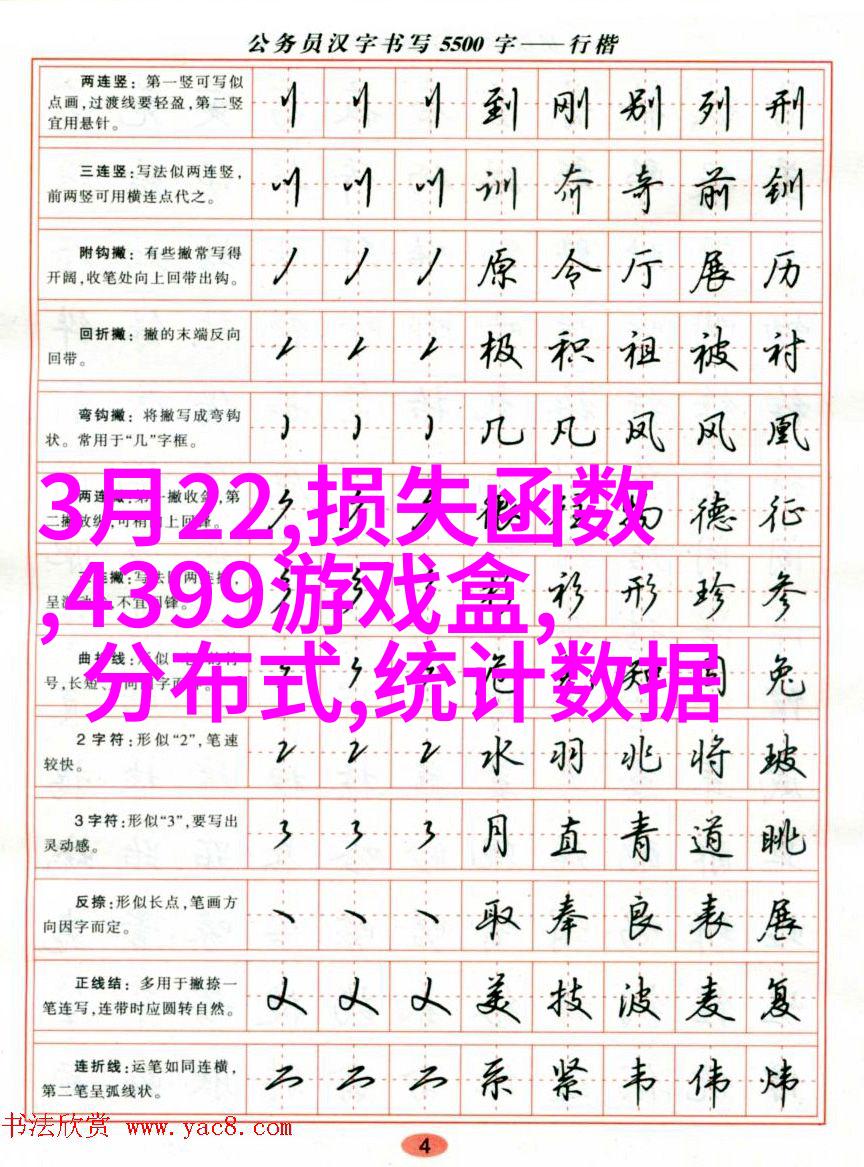 公务员汉字书写5500字——行楷
两连竖：第一竖可写似
点画，过渡线要轻盈，第二竖
宜用悬针。
到 刚 别 列 刑
三连竖：写法似两连竖，
前两竖可用横连点代之。
训 奔 奇 前 钏
附钩撇：有些撇常写得
开阔，收笔处向上回带出钩。
原 令 厅 展 历
回折撇：撇的末端反向
回带。
极 积 祖 被 衬
弯钩撇：将撇写成弯钩
状。常用于“几”字框。
几 凡 凤 风 凰
德 征
衫 形 珍 参
兔
3月22,损失函数
,4399游戏盒,
分布式,统计数据
2字符：形似“2”，笔速
较快。
水 羽 兆 将 玻
3字符：形似“3”，要写出
灵动感。
月 直 青 道 眺
反捺：形似长点，笔画方
向因字而定。
取 奉 良 表 展
正线结：多用于撇捺一
笔连写，连带时应圆转自然。
美 技 波 麦 复
连折线：运笔如同连横，
第二笔呈弧线状。
系 紧 韦 伟 炜
书法欣赏 www.yac8.com
4